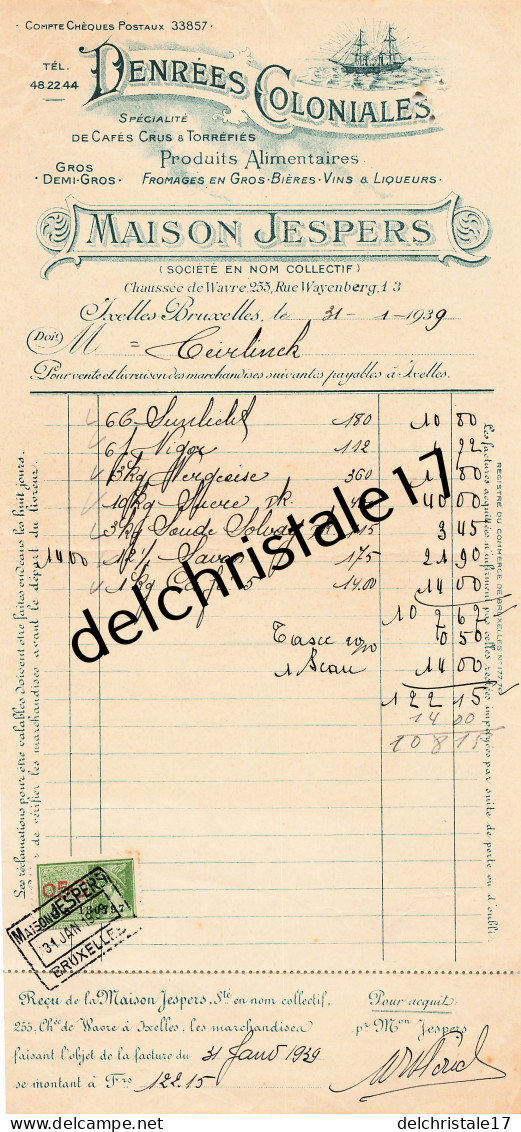 · COMPTE CHÈQUES POSTAUX 33857 ·
TÉL.
48.22.44
DENRÉES COLONIALES
SPÉCIALITÉ
DE CAFÉS CRUS & TORRÉFIÉS
Produits Alimentaires
GROS
· DEMI-GROS ·
FROMAGES EN GROS · BIÈRES · VINS & LIQUEURS ·
MAISON JESPERS
( SOCIÉTÉ EN NOM COLLECTIF )
Chaussée de Wavre, 255, Rue Wayenberg, 1-3
Ixelles-Bruxelles, le 31-1-1939
Doit M Ceirlinck
Pour vente et livraison des marchandises suivantes payables à Ixelles.
Sunlicht 180 10 80
6 Vigor 112
3 kg Vergeoise 360
10 kg Sucre 40 00
3 kg Soude Solvay 3 45
1400 12 Savon 175 21 90
1 kg Café 1400 14 00
102 67
Taxe 0 50
1 Seau 14 00
122 15
14 00
108 15
Les réclamations pour être valables doivent être faites endéans les huit jours.
de vérifier les marchandises avant le départ du livreur.
REGISTRE DU COMMERCE DE BRUXELLES N°
delchristale17
MAISON JESPERS
31 JAN 1939
BRUXELLES
Reçu de la Maison Jespers, Sté en nom collectif,
255, Chée de Wavre à Ixelles, les marchandises
faisant l'objet de la facture du 31 Janv 1939
se montant à Frs 122.15
Pour acquit
pr Mon Jespers
Delcampe.net
delchristale17